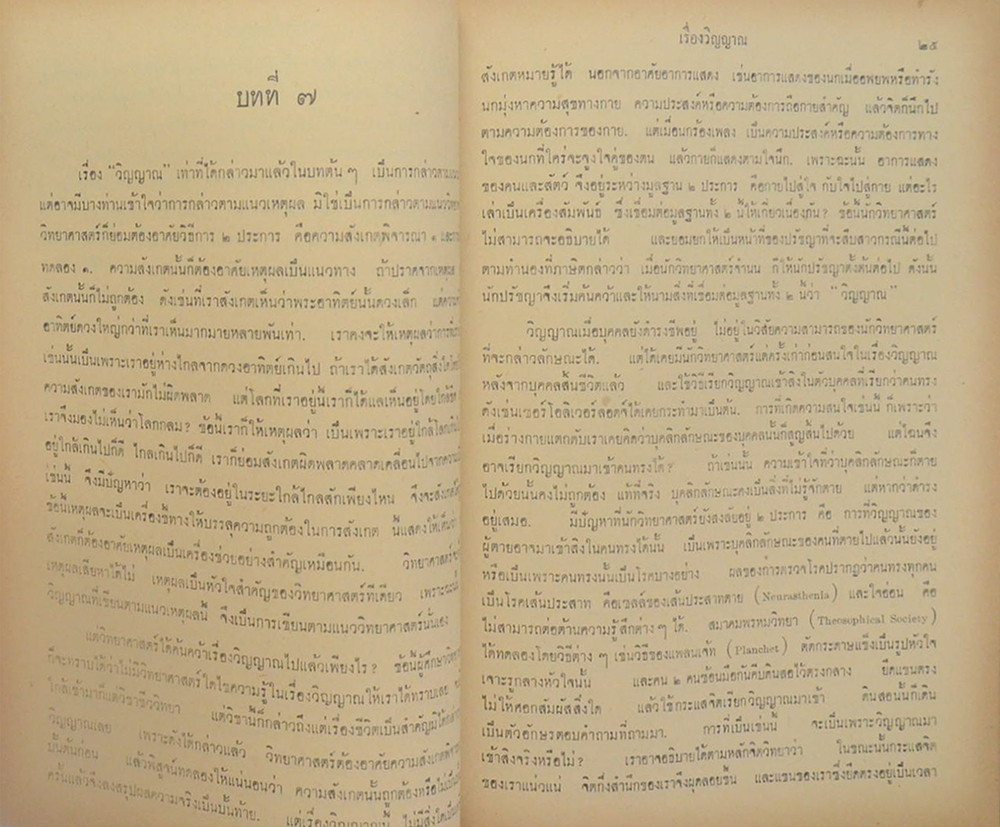 บทที่ ๗
เรื่อง "วิญญาณ" เท่าที่ได้กล่าวมาแล้วในบทต้น ๆ เป็นการกล่าวตามแนว
แต่อาจมีบางท่านเข้าใจว่าการกล่าวตามแนวเหตุผล มิใช่เป็นการกล่าวตามแนววิทยา
วิทยาศาสตร์ก็ย่อมต้องอาศัยวิธีการ ๒ ประการ คือความสังเกตพิจารณา ๑ และการ
ทดลอง ๑. ความสังเกตนั้นก็ต้องอาศัยเหตุผลเป็นแนวทาง ถ้าปราศจากเหตุผล
สังเกตนั้นก็ไม่ถูกต้อง ดังเช่นที่เราสังเกตเห็นว่าพระอาทิตย์นั้นดวงเล็ก
อาทิตย์ดวงใหญ่กว่าที่เราเห็นมากมายหลายพันเท่า. เราคงจะให้เหตุผลว่าการ
เช่นนั้นเป็นเพราะเราอยู่ห่างไกลจากดวงอาทิตย์เกินไป ถ้าเราได้สังเกตวัตถุสิ่งใด
ความสังเกตของเรามักไม่ผิดพลาด แต่โลกที่เราอยู่นี้เราก็ได้แลเห็นอยู่โดยใกล้ชิด
เราจึงมองไม่เห็นว่าโลกกลม? ข้อนี้เราก็ให้เหตุผลว่า เป็นเพราะเราอยู่ใกล้โลก
อยู่ใกล้เกินไปก็ดี ไกลเกินไปก็ดี เราก็ย่อมสังเกตผิดพลาดคลาดเคลื่อนไปจากความ
เช่นนี้ จึงมีปัญหาว่า เราจะต้องอยู่ในระยะใกล้ไกลสักเพียงไหน จึงจะสังเกต
ข้อนี้เหตุผลจะเป็นเครื่องชี้ทางให้บรรลุความถูกต้องในการสังเกต นี้แสดงให้เห็น
สังเกตก็ต้องอาศัยเหตุผลเป็นเครื่องช่วยอย่างสำคัญเหมือนกัน. วิทยาศาสตร์
เหตุผลเสียหาได้ไม่ เหตุผลเป็นหัวใจสำคัญของวิทยาศาสตร์ทีเดียว เพราะฉะนั้น
วิญญาณที่เขียนตามแนวเหตุผลนี้ จึงเป็นการเขียนตามแนววิทยาศาสตร์นั่นเอง
แต่วิทยาศาสตร์ได้ค้นคว้าเรื่องวิญญาณไปแล้วเพียงไร? ข้อนี้ผู้ศึกษาวิทยา
ก็จะทราบได้ว่าไม่มีวิทยาศาสตร์ใดไขความรู้ในเรื่องวิญญาณให้เราได้ทราบเลย
ใกล้เข้ามาก็แต่วิชาชีววิทยา แต่วิชานี้ก็กล่าวถึงแต่เรื่องชีวิตเป็นสำคัญมิได้กล่าว
วิญญาณเลย เพราะดังได้กล่าวแล้ว วิทยาศาสตร์ต้องอาศัยความสังเกต
นั้นต้นก่อน แล้วพิสูจน์ทดลองให้แน่นอนว่า ความสังเกตนั้นถูกต้องหรือไม่
ครั้นแล้วจึงลงสรุปผลความจริงเป็นบั้นท้าย. แต่เรื่องวิญญาณนี้ ไม่มีสิ่งใด
เรื่องวิญญาณ ๒๕
สังเกตหมายรู้ได้ นอกจากอาศัยอาการแสดง เช่นอาการแสดงของนกเมื่ออพยพหรือทำรัง
นกมุ่งหาความสุขทางกาย ความประสงค์หรือความต้องการถือกายสำคัญ แล้วจิตก็นึกไป
ตามความต้องการของกาย. แต่เมื่อนกร้องเพลง เป็นความประสงค์หรือความต้องการทาง
ใจของนกที่ใคร่จะจูงใจคู่ของตน แล้วกายก็แสดงตามใจนึก. เพราะฉะนั้น อาการแสดง
ของคนและสัตว์ จึงอยู่ระหว่างมูลฐาน ๒ ประการ คือกายไปสู่ใจ กับใจไปสู่กาย แต่อะไร
เล่าเป็นเครื่องสัมพันธ์ ซึ่งเชื่อมต่อมูลฐานทั้ง ๒ นี้ให้เกี่ยวเนื่องกัน? ข้อนี้นักวิทยาศาสตร์
ไม่สามารถจะอธิบายได้ และยอมยกให้เป็นหน้าที่ของปรัชญาที่จะสืบสาวกรณีนี้ต่อไป
ตามทำนองที่ภาษิตกล่าวว่า เมื่อนักวิทยาศาสตร์จำนน ก็ให้นักปรัชญาตั้งต้นต่อไป ดังนั้น
นักปรัชญาจึงเริ่มค้นคว้าและให้นามสิ่งที่เชื่อมต่อมูลฐานทั้ง ๒ นี้ว่า "วิญญาณ"
วิญญาณเมื่อบุคคลยังดำรงชีพอยู่ ไม่อยู่ในวิสัยความสามารถของนักวิทยาศาสตร์
ที่จะกล่าวลักษณะได้. แต่ได้เคยมีนักวิทยาศาสตร์แต่ครั้งเก่าก่อนสนใจในเรื่องวิญญาณ
หลังจากบุคคลสิ้นชีวิตแล้ว และใช้วิธีเรียกวิญญาณเข้าสิงในตัวบุคคลที่เรียกว่าคนทรง
ดังเช่นเซอร์โอลิเวอร์ลอดจ์ได้เคยกระทำมาเป็นต้น. การที่เกิดความสนใจเช่นนี้ ก็เพราะว่า
เมื่อร่างกายแตกดับเราเคยคิดว่าบุคลิกลักษณะของบุคคลนั้นก็สูญสิ้นไปด้วย แต่ไฉนจึง
อาจเรียกวิญญาณมาเข้าคนทรงได้? ถ้าเช่นนั้น ความเข้าใจที่ว่าบุคลิกลักษณะก็ตาย
ไปด้วยนั้นคงไม่ถูกต้อง แท้ที่จริง บุคลิกลักษณะคงเป็นสิ่งที่ไม่รู้จักตาย แต่หากว่าดำรง
อยู่เสมอ. มีปัญหาที่นักวิทยาศาสตร์ยังสงสัยอยู่ ๒ ประการ คือ การที่วิญญาณของ
ผู้ตายอาจมาเข้าสิงในคนทรงได้นั้น เป็นเพราะบุคลิกลักษณะของคนที่ตายไปแล้วนั้นยังอยู่
หรือเป็นเพราะคนทรงนั้นเป็นโรคบางอย่าง ผลของการตรวจโรคปรากฏว่าคนทรงทุกคน
เป็นโรคเส้นประสาท คือเซลล์ของเส้นประสาทตาย (Neurasthenia) และใจอ่อน คือ
ไม่สามารถต่อต้านความรู้สึกต่าง ๆ ได้. สมาคมพรหมวิทยา (Theosophical Society)
ได้ทดลองโดยวิธีต่าง ๆ เช่นวิธีของแพลนเจ้ท (Planchet) ตัดกระดาษแข็งเป็นรูปหัวใจ
เจาะรูกลางหัวใจนั้น และคน ๒ คนซ้อนมือกันคีบดินสอไว้ตรงกลาง ยึดแขนตรง
ไม่ให้ศอกสัมผัสสิ่งใด แล้วใช้กระแสจิตเรียกวิญญาณมาเข้า ดินสอนั้นก็เดิน
เป็นตัวอักษรตอบคำถามที่ถามมา. การที่เป็นเช่นนี้ จะเป็นเพราะวิญญาณมา
เข้าสิงจริงหรือไม่? เราอาจอธิบายได้ตามหลักจิตวิทยาว่า ในขณะนั้นกระแสจิต
ของเราแน่วแน่ จิตกึ่งสำนึกของเราจึงผุดลอยขึ้น และแขนของเราซึ่งยึดตรงอยู่เป็นเวลา